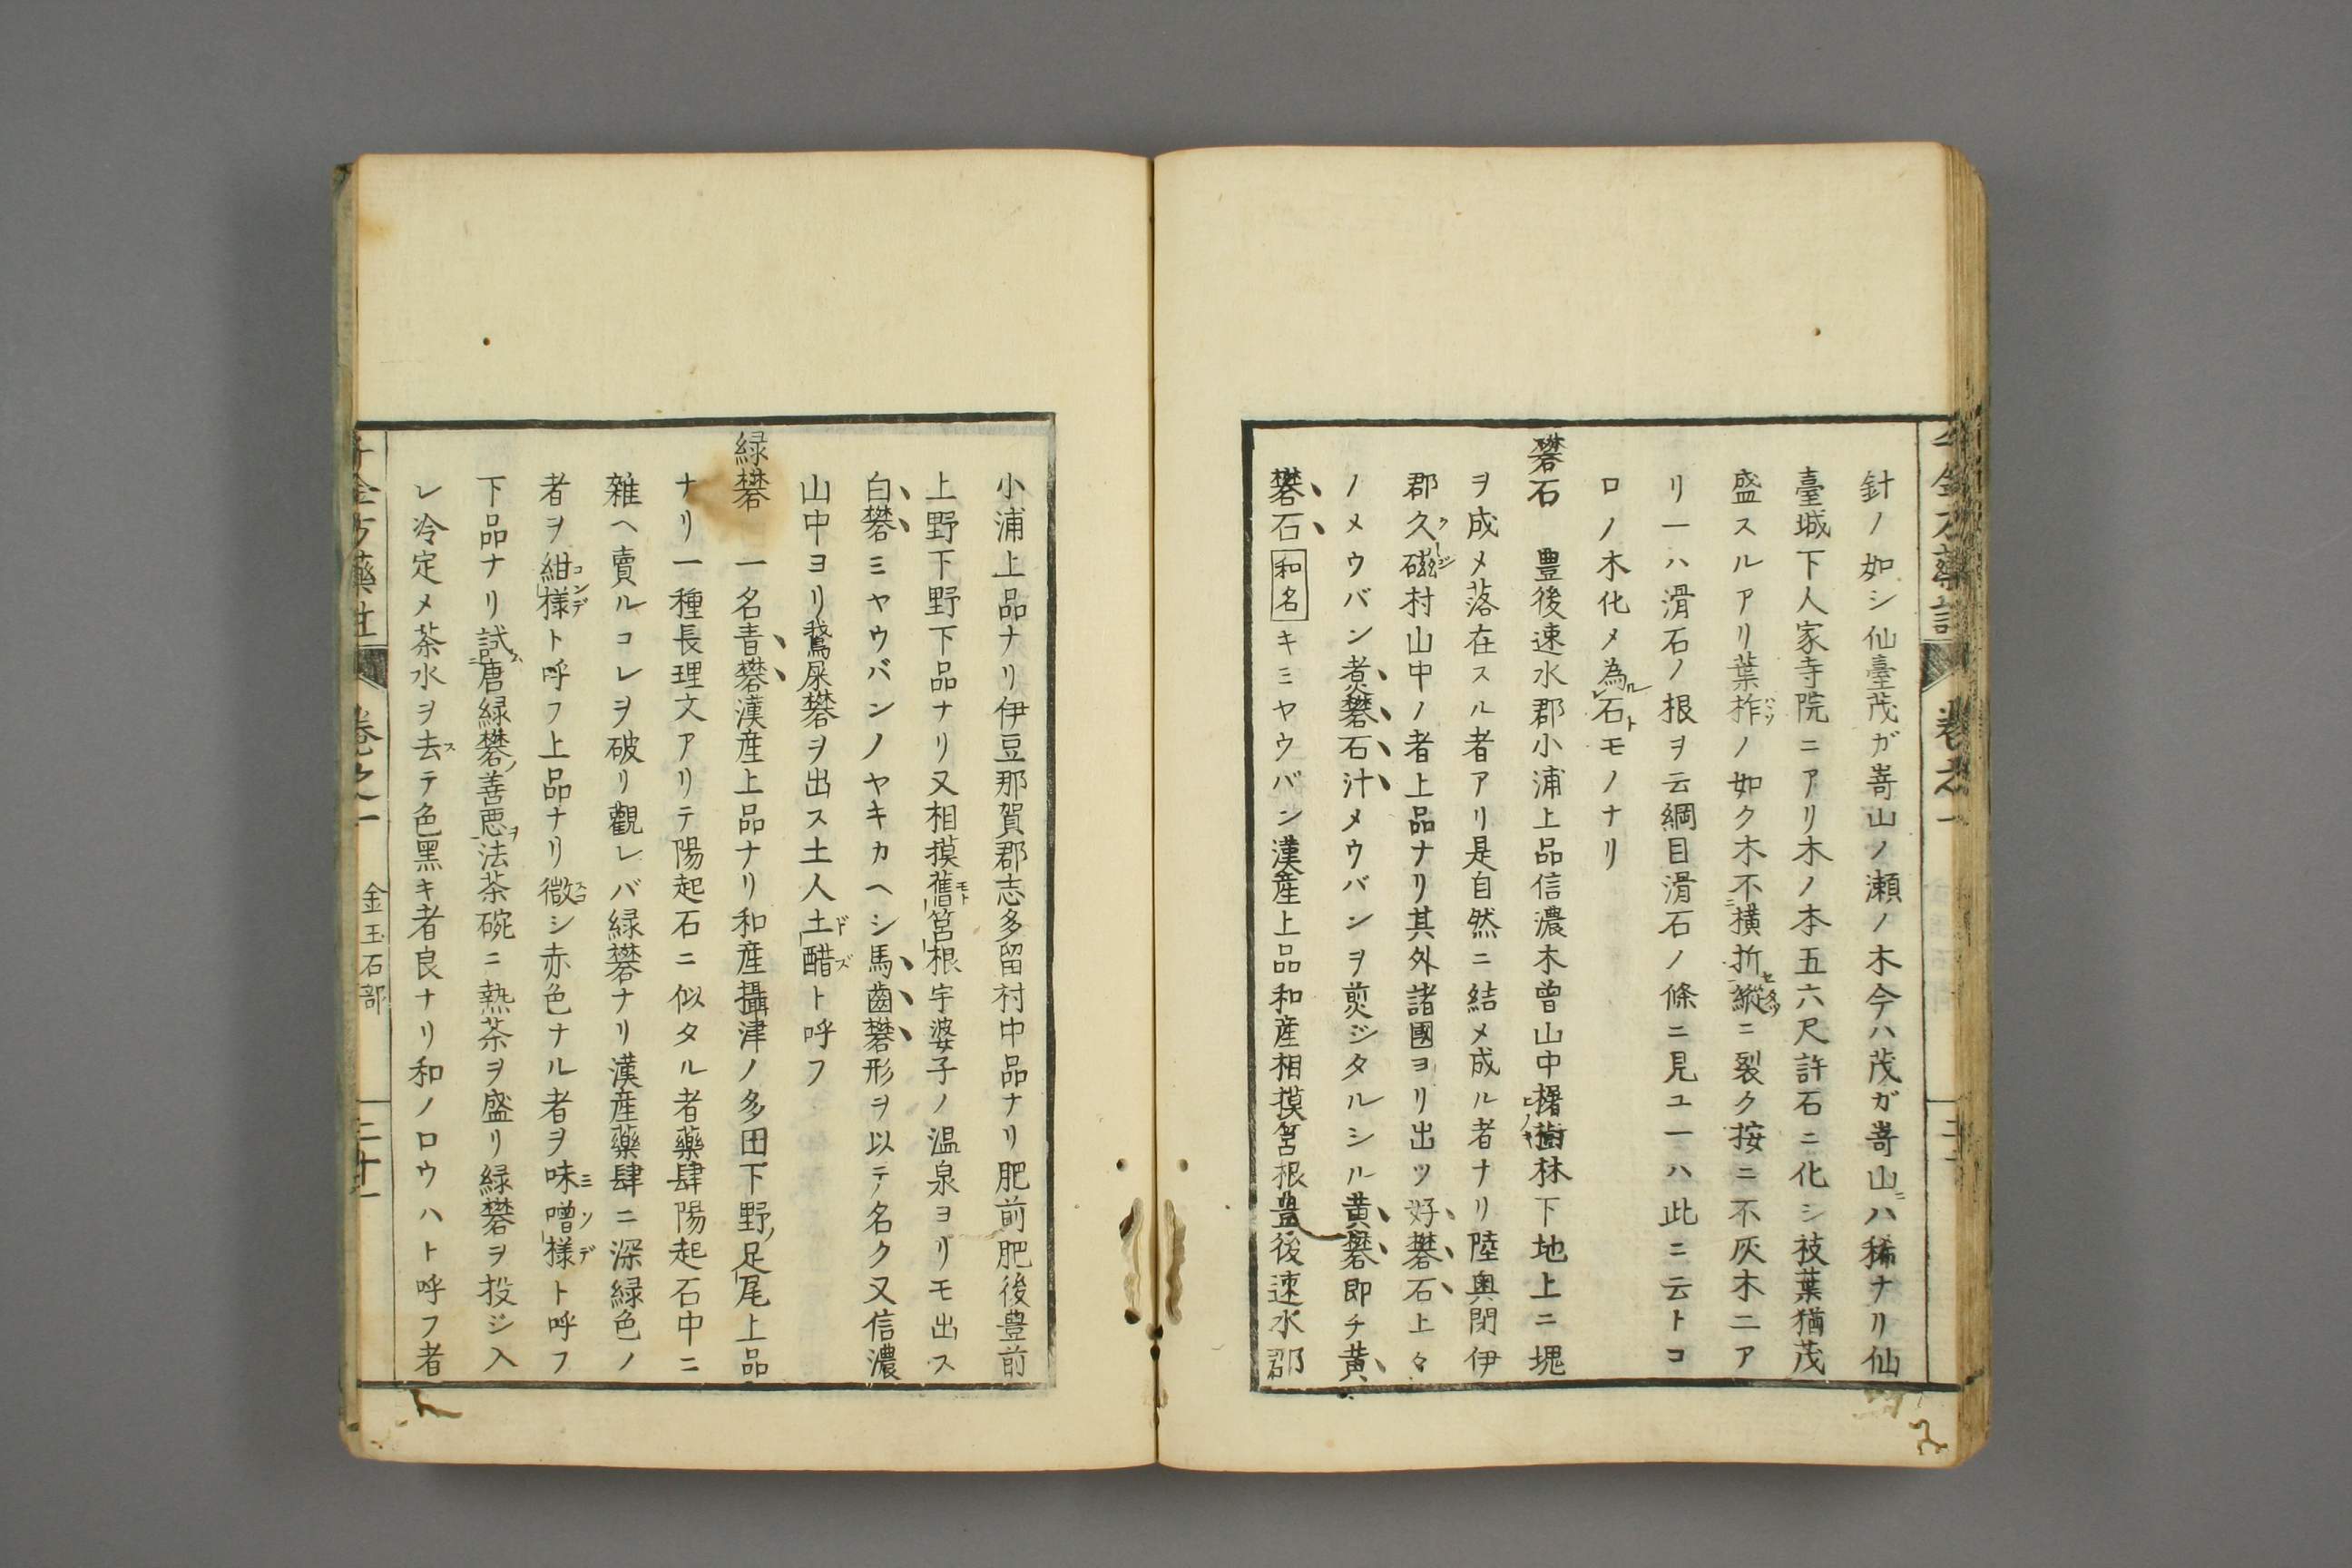 針ノ如シ仙臺茂ガ嵜山ノ瀬ノ木今ハ茂ガ嵜山ニハ稀ナリ仙
臺城下人家寺院ニアリ木ノ本五六尺許石ニ化シ枝葉猶茂
盛スルアリ葉柞ハヽソノ如ク木不横折縦ニ裂ク按ニ不灰木二ア
リ一ハ滑石ノ根ヲ云綱目滑石ノ條ニ見ユ一ハ此ニ云トコ
ロノ木化メ為ル石トモノナリ
礬石 豊後速水郡小浦上品信濃木曽山中林下地上ニ塊
ヲ成メ落在スル者アリ是自然ニ結メ成ル者ナリ陸奥閉伊
郡久クー磁ジ村山中ノ者上品ナリ其外諸國ヨリ出ツ好礬石上々
ノメウバン煮礬石汁メウバンヲ煎ジタルシル黄礬即チ黄
礬石和名キミヤウバン漢産上品和産相摸筥根豊後速水郡
小浦上品ナリ伊豆那賀郡志多留村中品ナリ肥前肥後豊前
上野下野下品ナリ又相摸舊モト筥根宇婆子ノ温泉ヨリモ出ス
白礬ミヤウバンノヤキカヘシ馬齒礬形ヲ以テ名ク又信濃
山中ヨリ鵞屎礬ヲ出ス土人土ド醋ズト呼フ
緑礬 一名青礬漢産上品ナリ和産攝津ノ多田下野ノ足尾上品
ナリ一種長理文アリテ陽起石ニ似タル者藥肆陽起石中ニ
雜ヘ賣ルコレヲ破リ觀レバ緑礬ナリ漢産藥肆ニ深緑色ノ
者ヲ紺コン様デト呼フ上品ナリ微スコシ赤色ナル者ヲ味ミ噌ソ様デト呼フ
下品ナリ試ムニ唐緑礬ノ善悪ヲ法茶碗ニ熱茶ヲ盛リ緑礬ヲ投ジ入
レ冷定メ茶水ヲ去ステ色黒キ者良ナリ和ノロウハト呼フ者
千金方藥註 卷之一 金玉石部 二十一